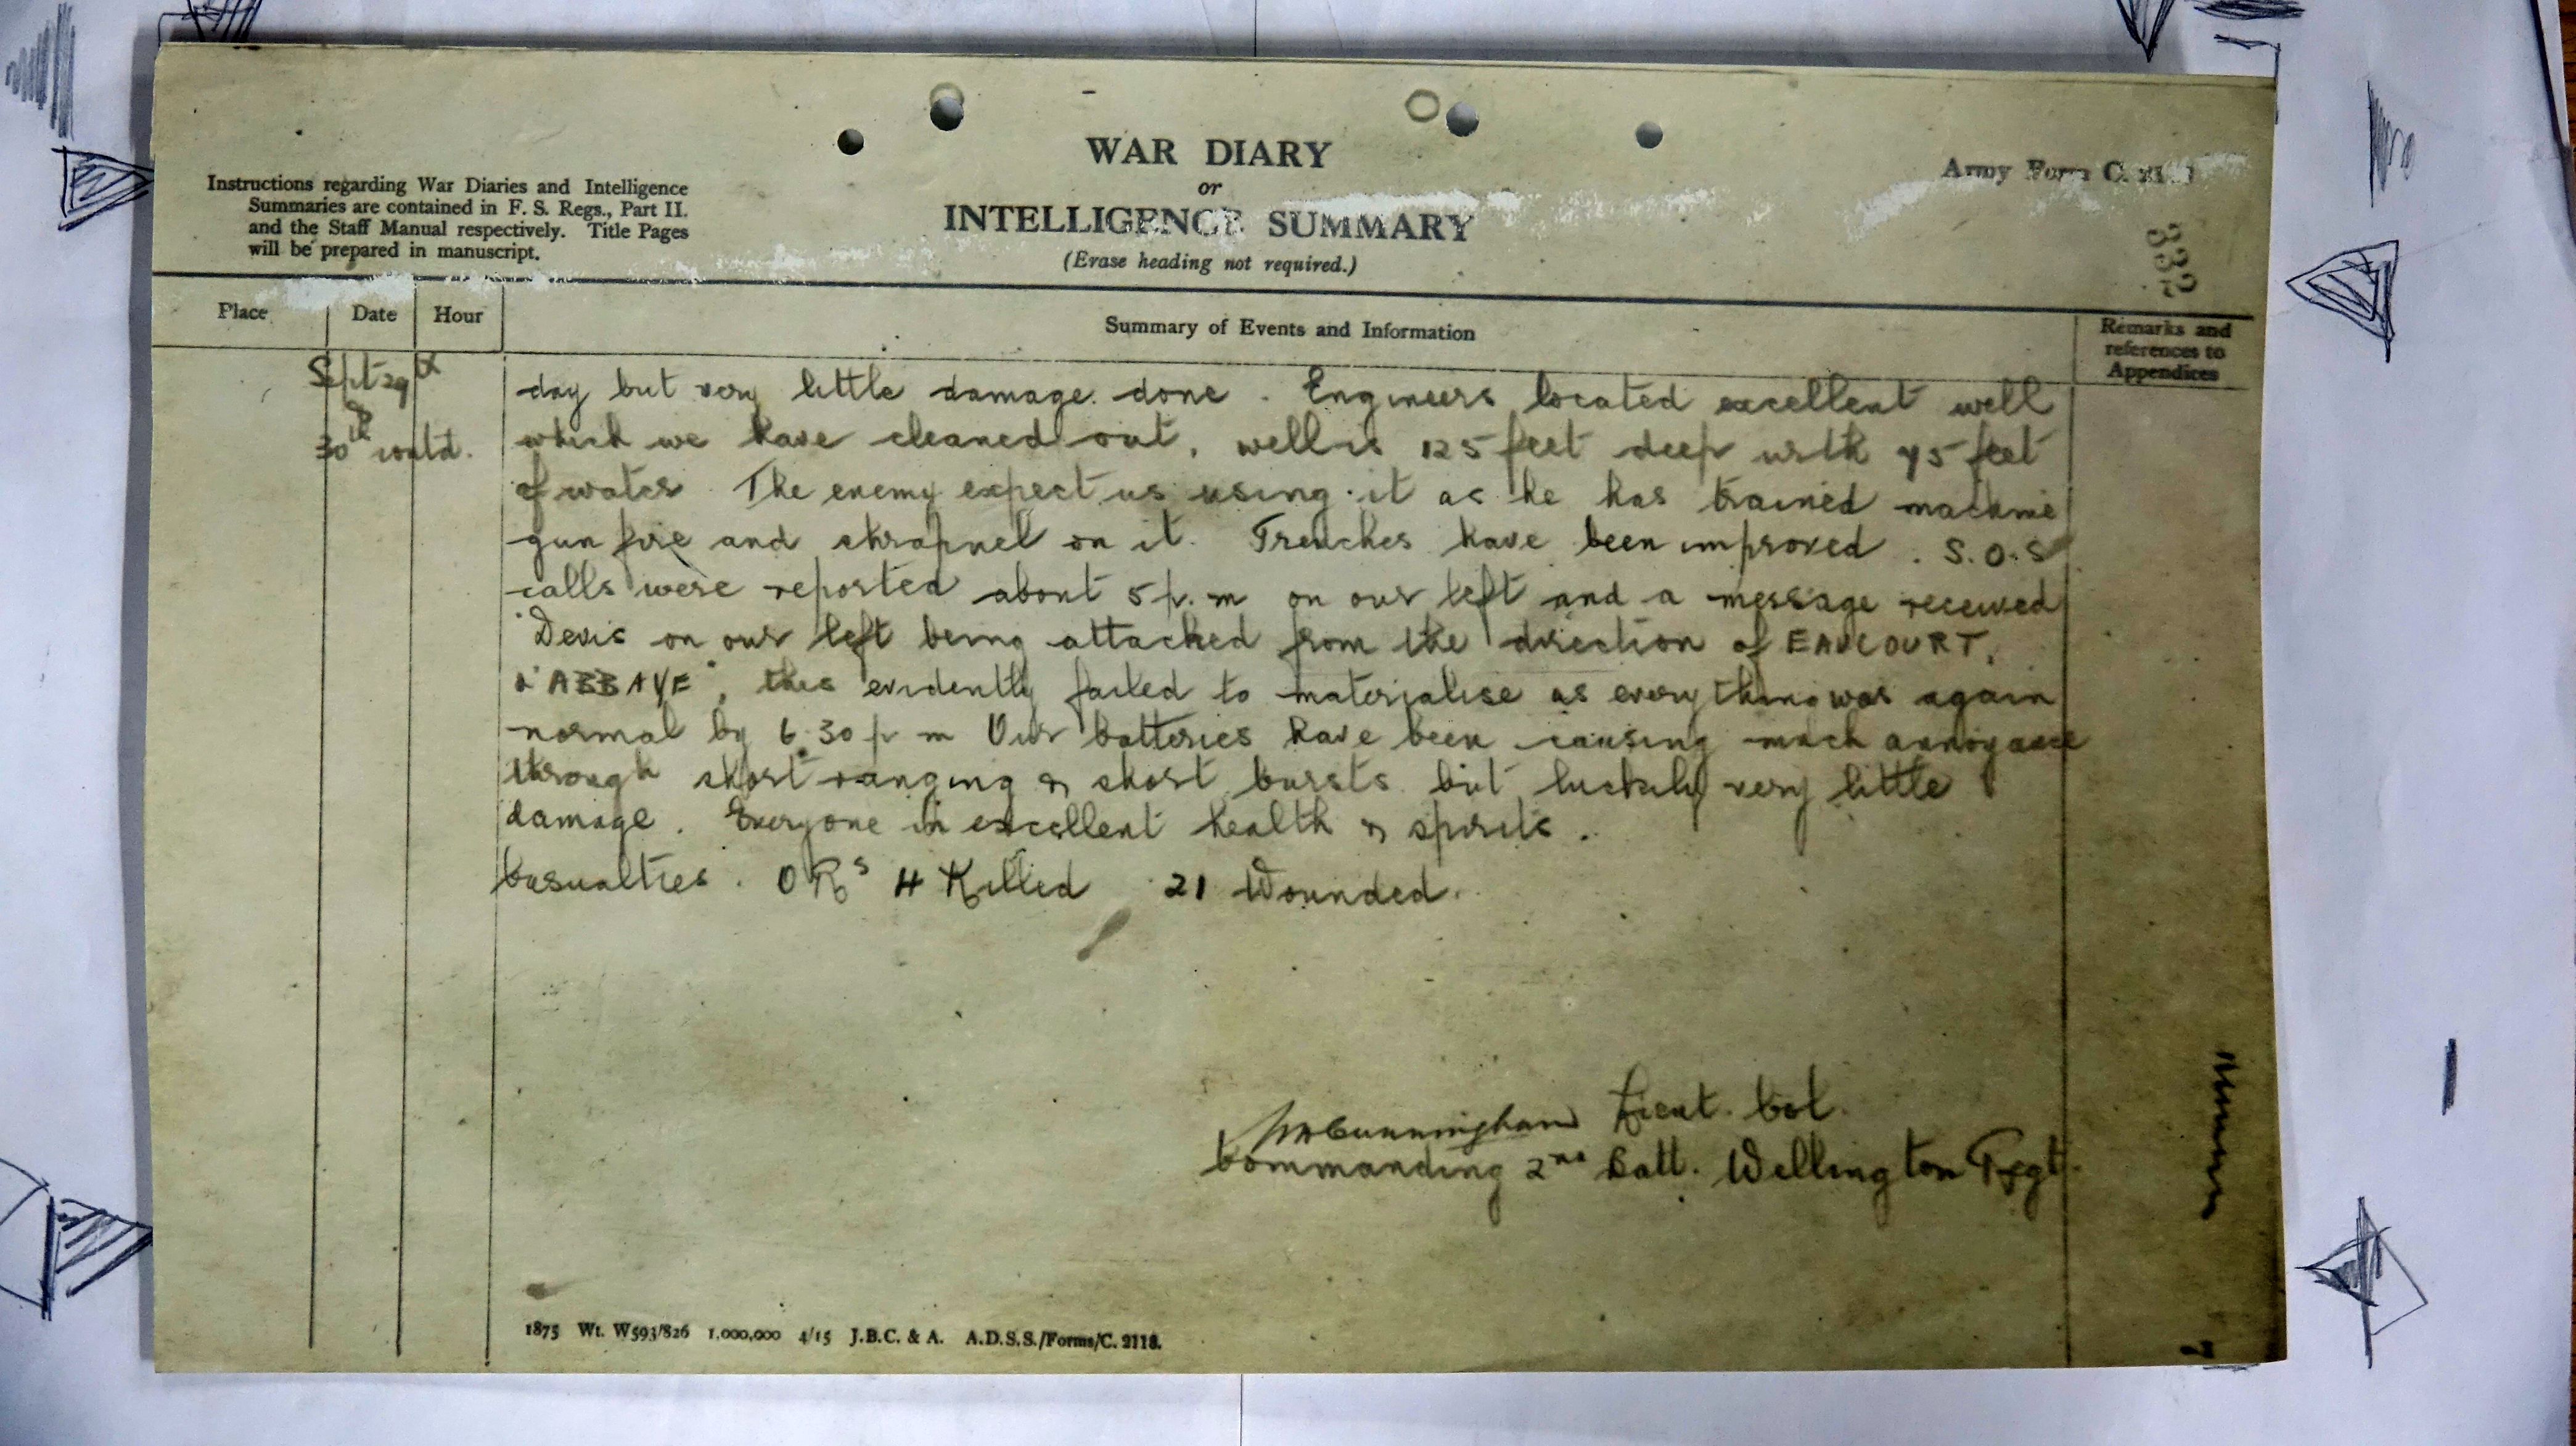 WAR DIARY
or
INTELLIGENCE SUMMARY
(Erase heading not required.)
Instructions regarding War Diaries and Intelligence
Summaries are contained in F. S. Regs., Part II.
and the Staff Manual respectively. Title Pages
will be prepared in manuscript.
Army Form C.
332
Place
Date
Hour
Summary of Events and Information
Remarks and
references to
Appendices
Sept 29th
&
30th contd.
day but very little damage done. Engineers located excellent well
which we have cleaned out, well is 125 feet deep with 45 feet
of water. The enemy expect us using it as he has trained machine
gun fire and shrapnel on it. Trenches have been improved. S.O.S
calls were reported about 5 p.m on our left and a message received
"Devis on our left being attacked from the direction of EAUCOURT,
L'ABBAYE", this evidently failed to materialise as everything was again
normal by 6.30 p m Our batteries have been causing much annoyance
through short ranging & short bursts but luckily very little
damage. Everyone in excellent health & spirits.
Casualties. O Rs 4 Killed 21 Wounded.
Cunningham Lieut. Col.
Commanding 2nd Batt. Wellington Regt.
1875 Wt. W593/826 1,000,000 4/15 J.B.C. & A. A.D.S.S./Forms/C. 2118.